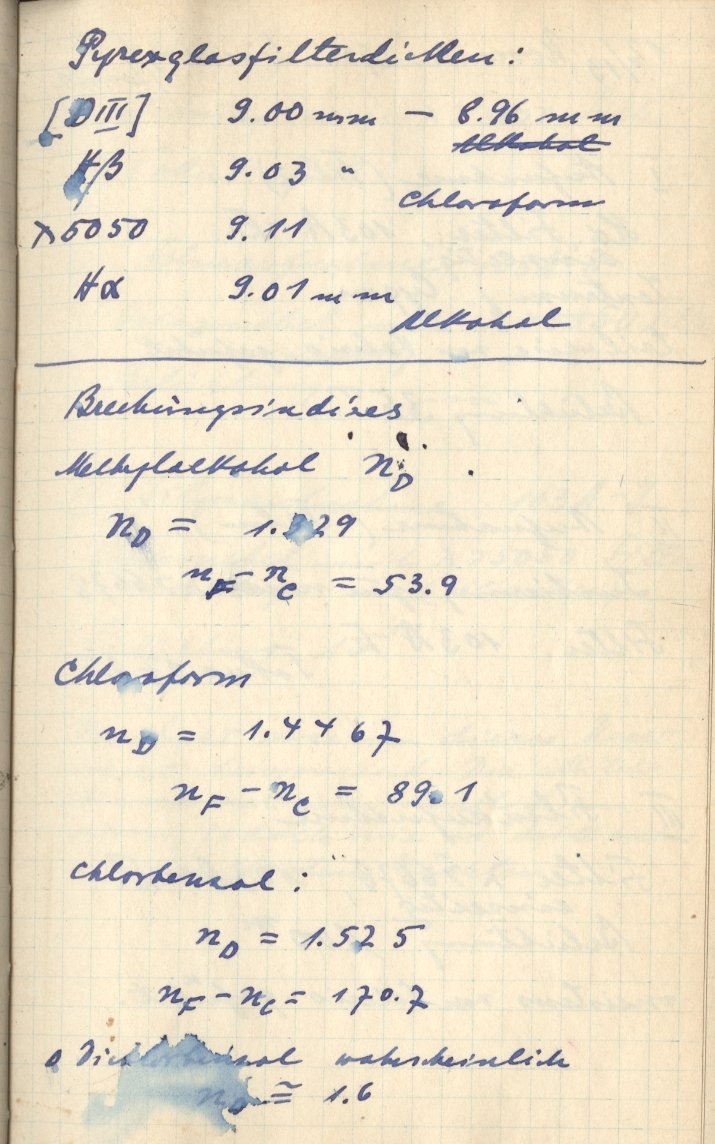 Pyrexglasfilterdicken:
[D III] 9.00 mm — 8.96 mm
Alkohol
Hβ 9.03 "
Chloroform
λ5050 9.11
Hα 9.01 mm
Alkohol
Brechungsindizes
Methylalkohol n_D
n_D = 1.329
n_F - n_C = 53.9
Chloroform
n_D = 1.4467
n_F - n_C = 89.1
Chlorbenzol:
n_D = 1.525
n_F - n_C = 170.7
o Dichlorbenzol wahrscheinlich
n_D ≅ 1.6